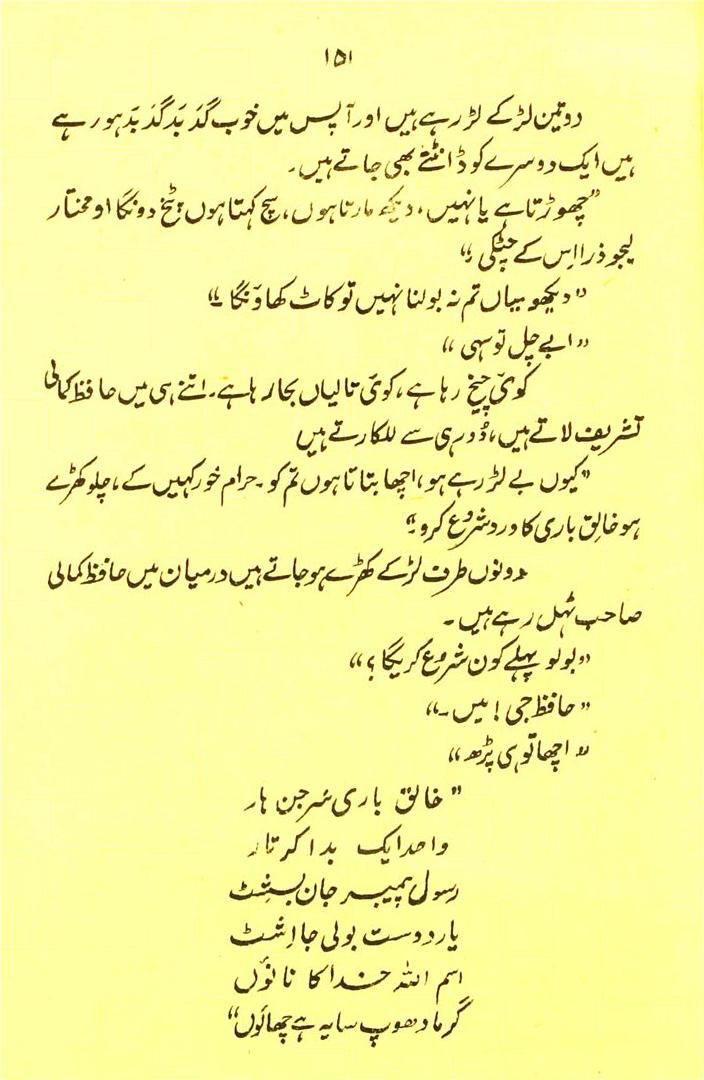 ۱۵۱
دو تین لڑکے لڑ رہے ہیں اور آپس میں خوب گَد بَد گَد بَد ہو رہے
ہیں ایک دوسرے کو ڈانٹتے بھی جاتے ہیں۔
"چھوڑتا ہے یا نہیں، دیکھ مارتا ہوں، سچ کہتا ہوں پٹخ دونگا او مختار
لیجو ذرا اِس کے چٹکی۔"
"دیکھو میاں تم نہ بولنا نہیں تو کاٹ کھاؤنگا۔"
"ابے چل تو سہی"
کوئی چیخ رہا ہے، کوئی تالیاں بجا رہا ہے۔ اتنے ہی میں حافظ کمالی
تشریف لاتے ہیں، دُور ہی سے للکارتے ہیں
"کیوں بے لڑ رہے ہو، اچھا بتاتا ہوں تم کو۔ حرام خور کہیں کے، چلو کھڑے
ہو خالق باری کا ورد شروع کرو۔"
دونوں طرف لڑکے کھڑے ہو جاتے ہیں درمیان میں حافظ کمالی
صاحب ٹہل رہے ہیں۔
"بولو پہلے کون شروع کریگا؟"
"حافظ جی! میں۔"
"اچھا تو ہی پڑھ"
"خالق باری سَرجن ہار
واحد ایک بدا کرتار
رسول پیمبر جان بسِشٹ
یار دوست بولی جا اِشٹ
اسم اللہ خدا کا نانوٗں
گرما دھوپ سایہ ہے چھانوٗں"